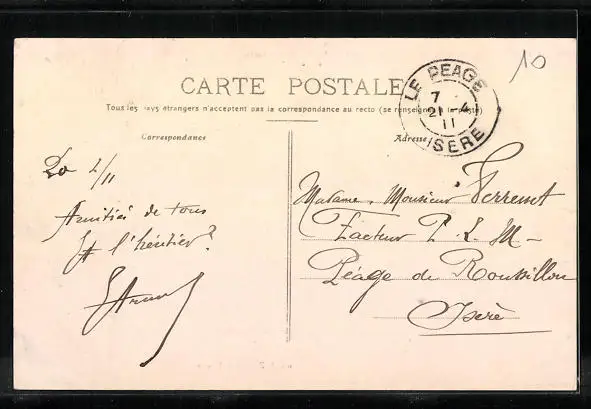 10
CARTE POSTALE
Tous les pays étrangers n'acceptent pas la correspondance au recto (se renseigner à la poste)
LE PEAGE
7
21 -4
11
ISERE
Correspondance
Adresse
20 4/11
Amitiés de tous
Et l'héritier?
Madame, Monsieur Ferrent
Facteur P. L. M-
Péage de Roussillon
Isère